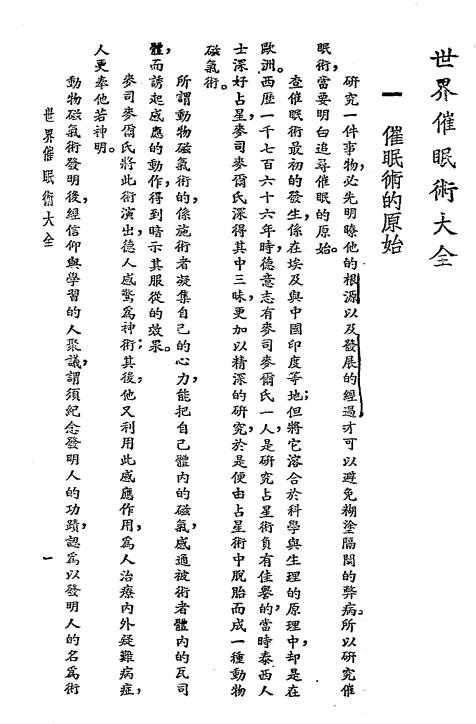 世界催眠術大全
一　催眠術的原始
研究一件事物，必先明暸他的根源以及發展的經過才可以避免糊塗隔閡的弊病。所以研究催
眠術，當要明白追尋催眠的原始。
查催眠術最初的發生，係在埃及與中國印度等地；但將它溶合於科學與生理的原理中，却是在
歐洲。西歷一千七百六十六年時，德意志有麥司麥爾氏一人，是研究占星術負有佳譽的，當時泰西人
士深好占星，麥司麥爾氏深得其中三昧，更加以精深的研究，於是便由占星術中脫胎而成一種動物
磁氣術。
所謂動物磁氣術的，係施術者凝集自己的心力，能把自己體內的磁氣，感通被術者體內的瓦司
體，而誘起感應的動作，得到暗示其服從的效果。
麥司麥爾氏將此術演出，德人感驚爲神術；其後，他又利用此感應作用，爲人治療內外疑難病症，
人更奉他若神明。
動物磁氣術發明後，經信仰與學習的人聚議，謂須紀念發明人的功蹟，認爲以發明人的名爲術
世界催眠術大全
一